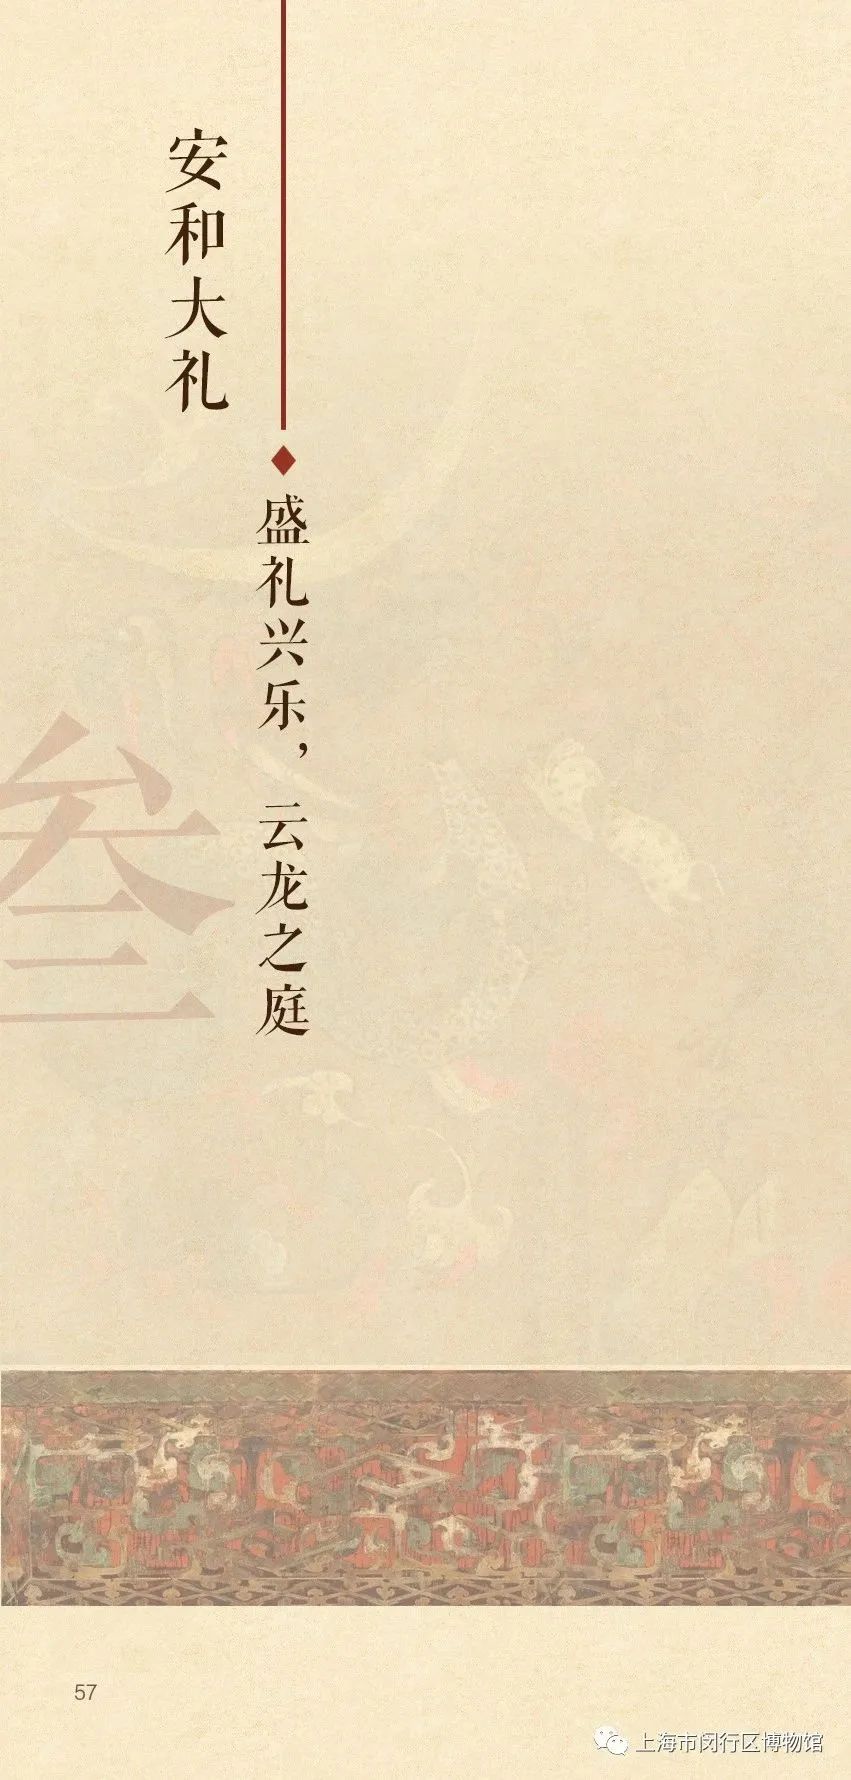 安和大礼
盛礼兴乐，云龙之庭
叁
57
上海市闵行区博物馆